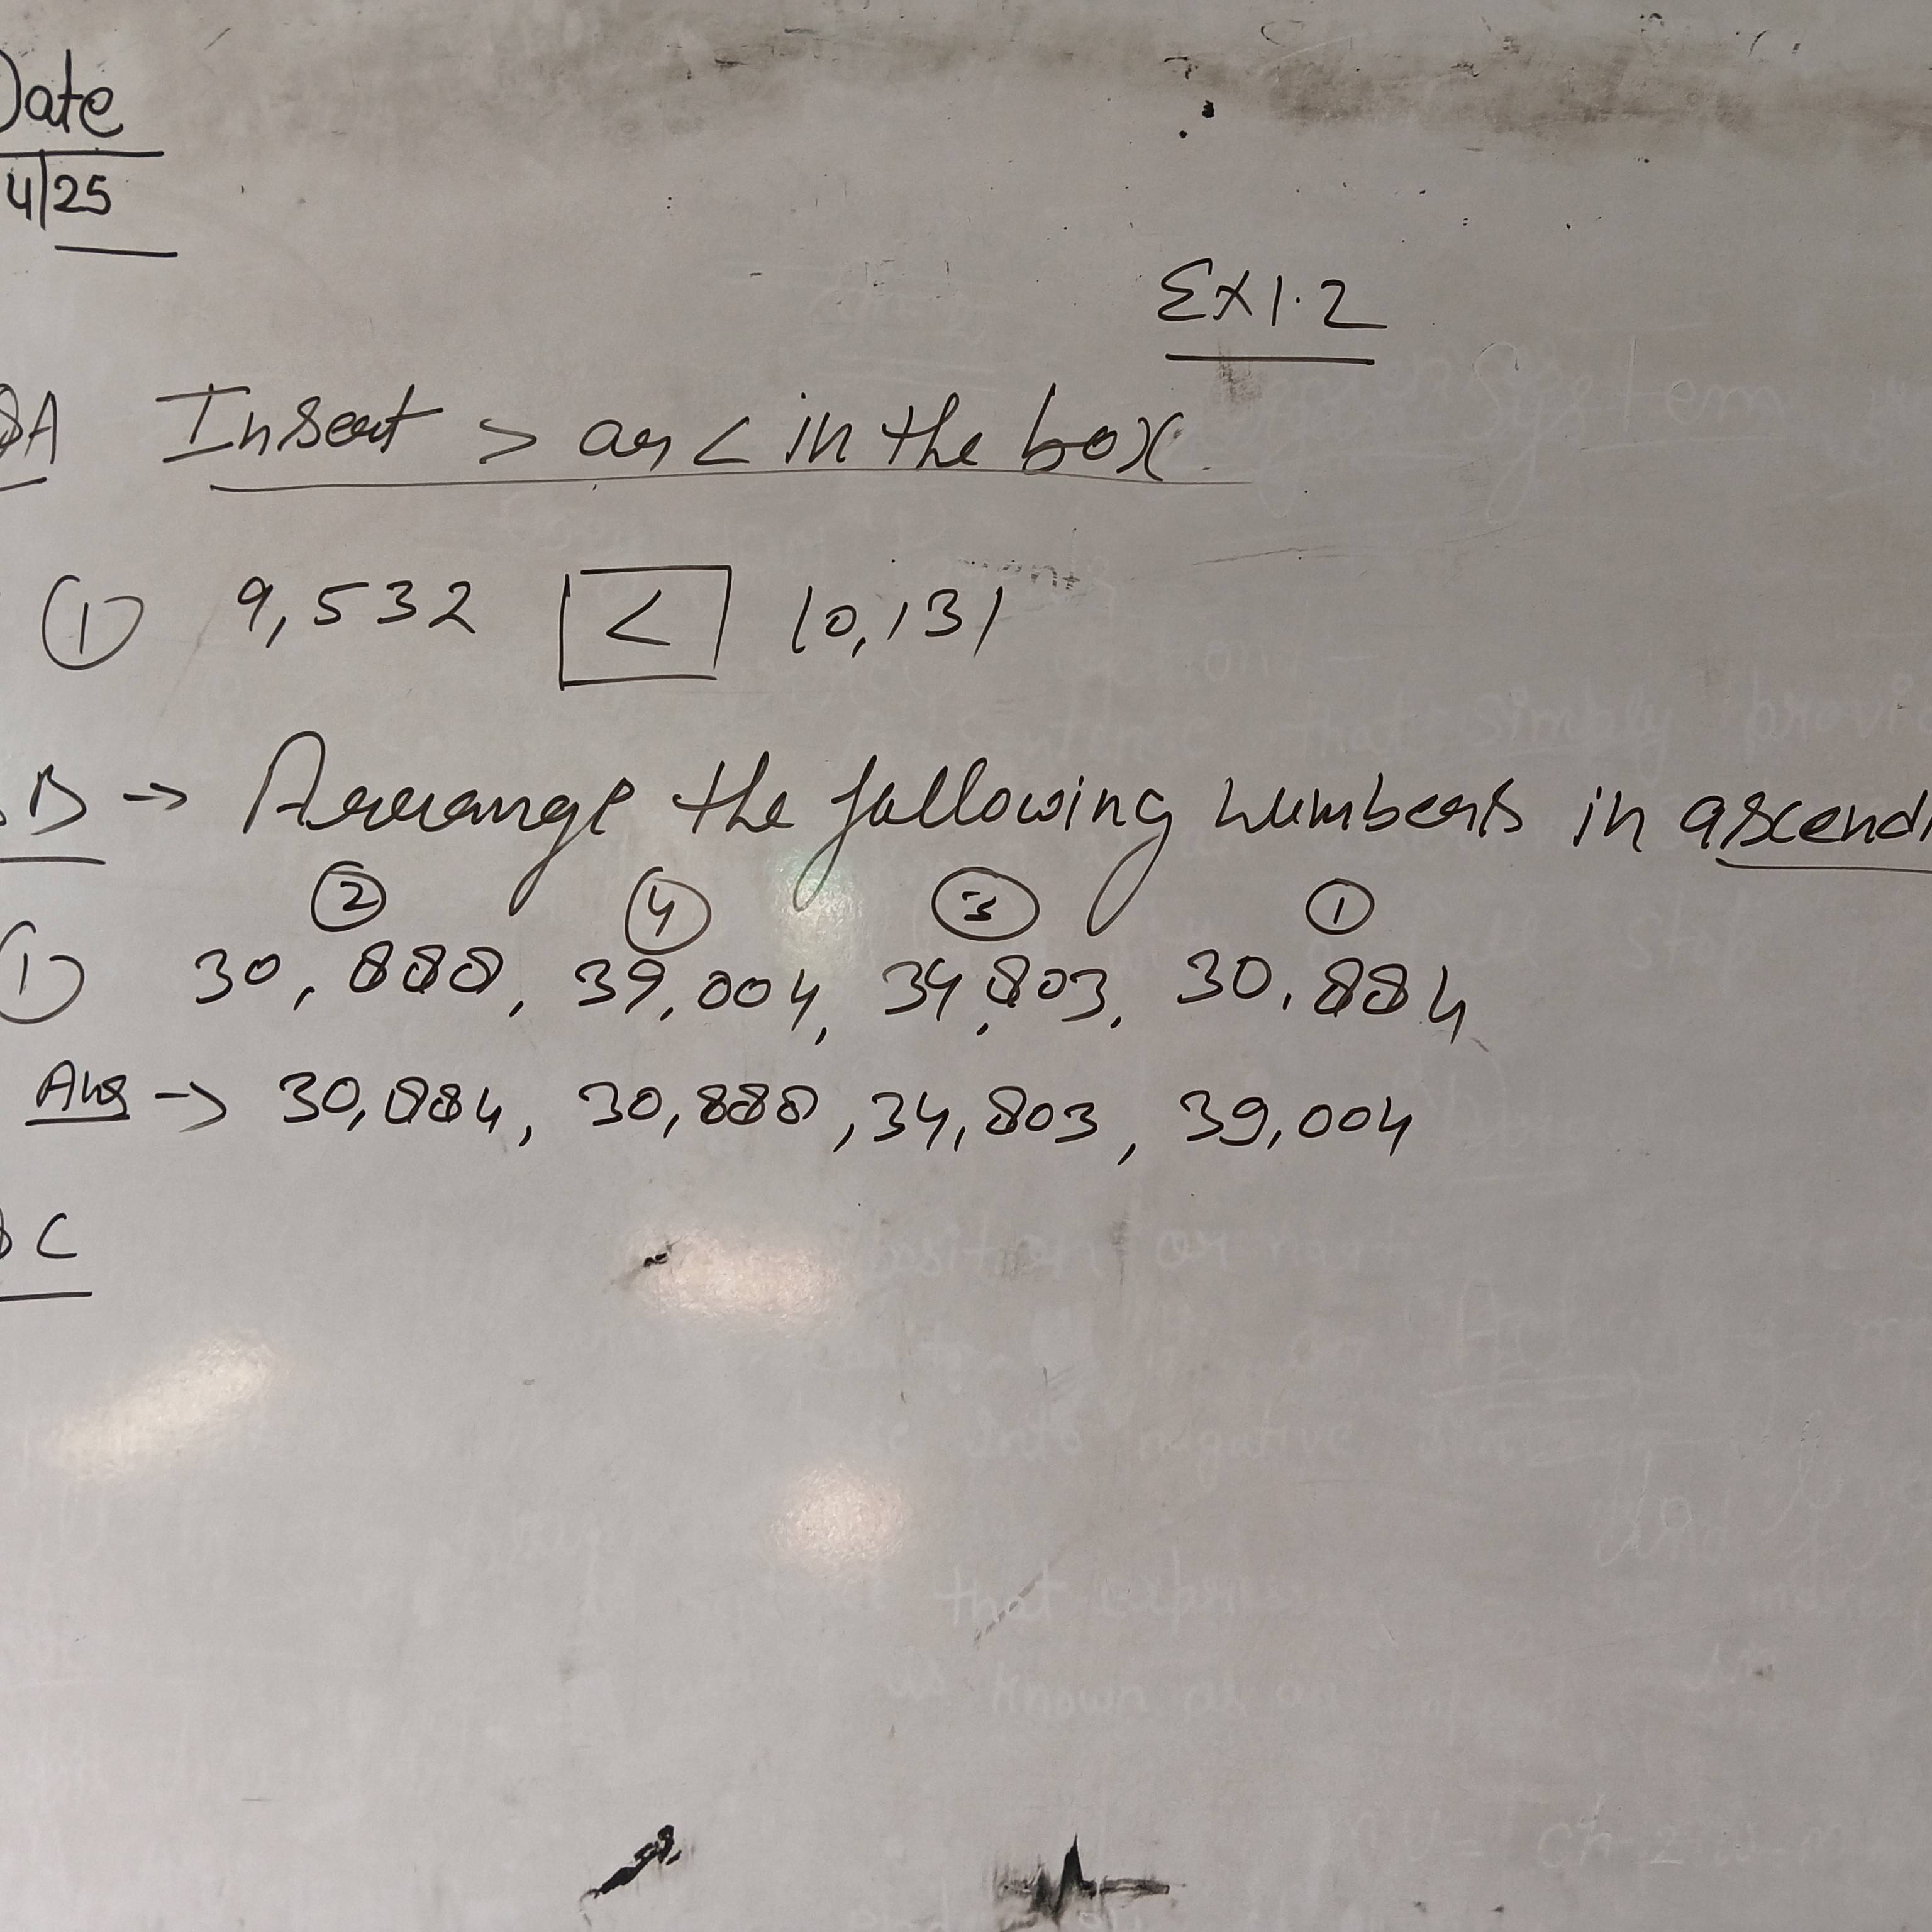 Date
4/25
Ex 1.2
QA Insert > or < in the box.
① 9,532 < 10,131
B → Arrange the following numbers in ascendi
② ④ ③ ①
① 30,888, 39,004, 34,803, 30,884
Ans → 30,884, 30,888, 34,803, 39,004
C